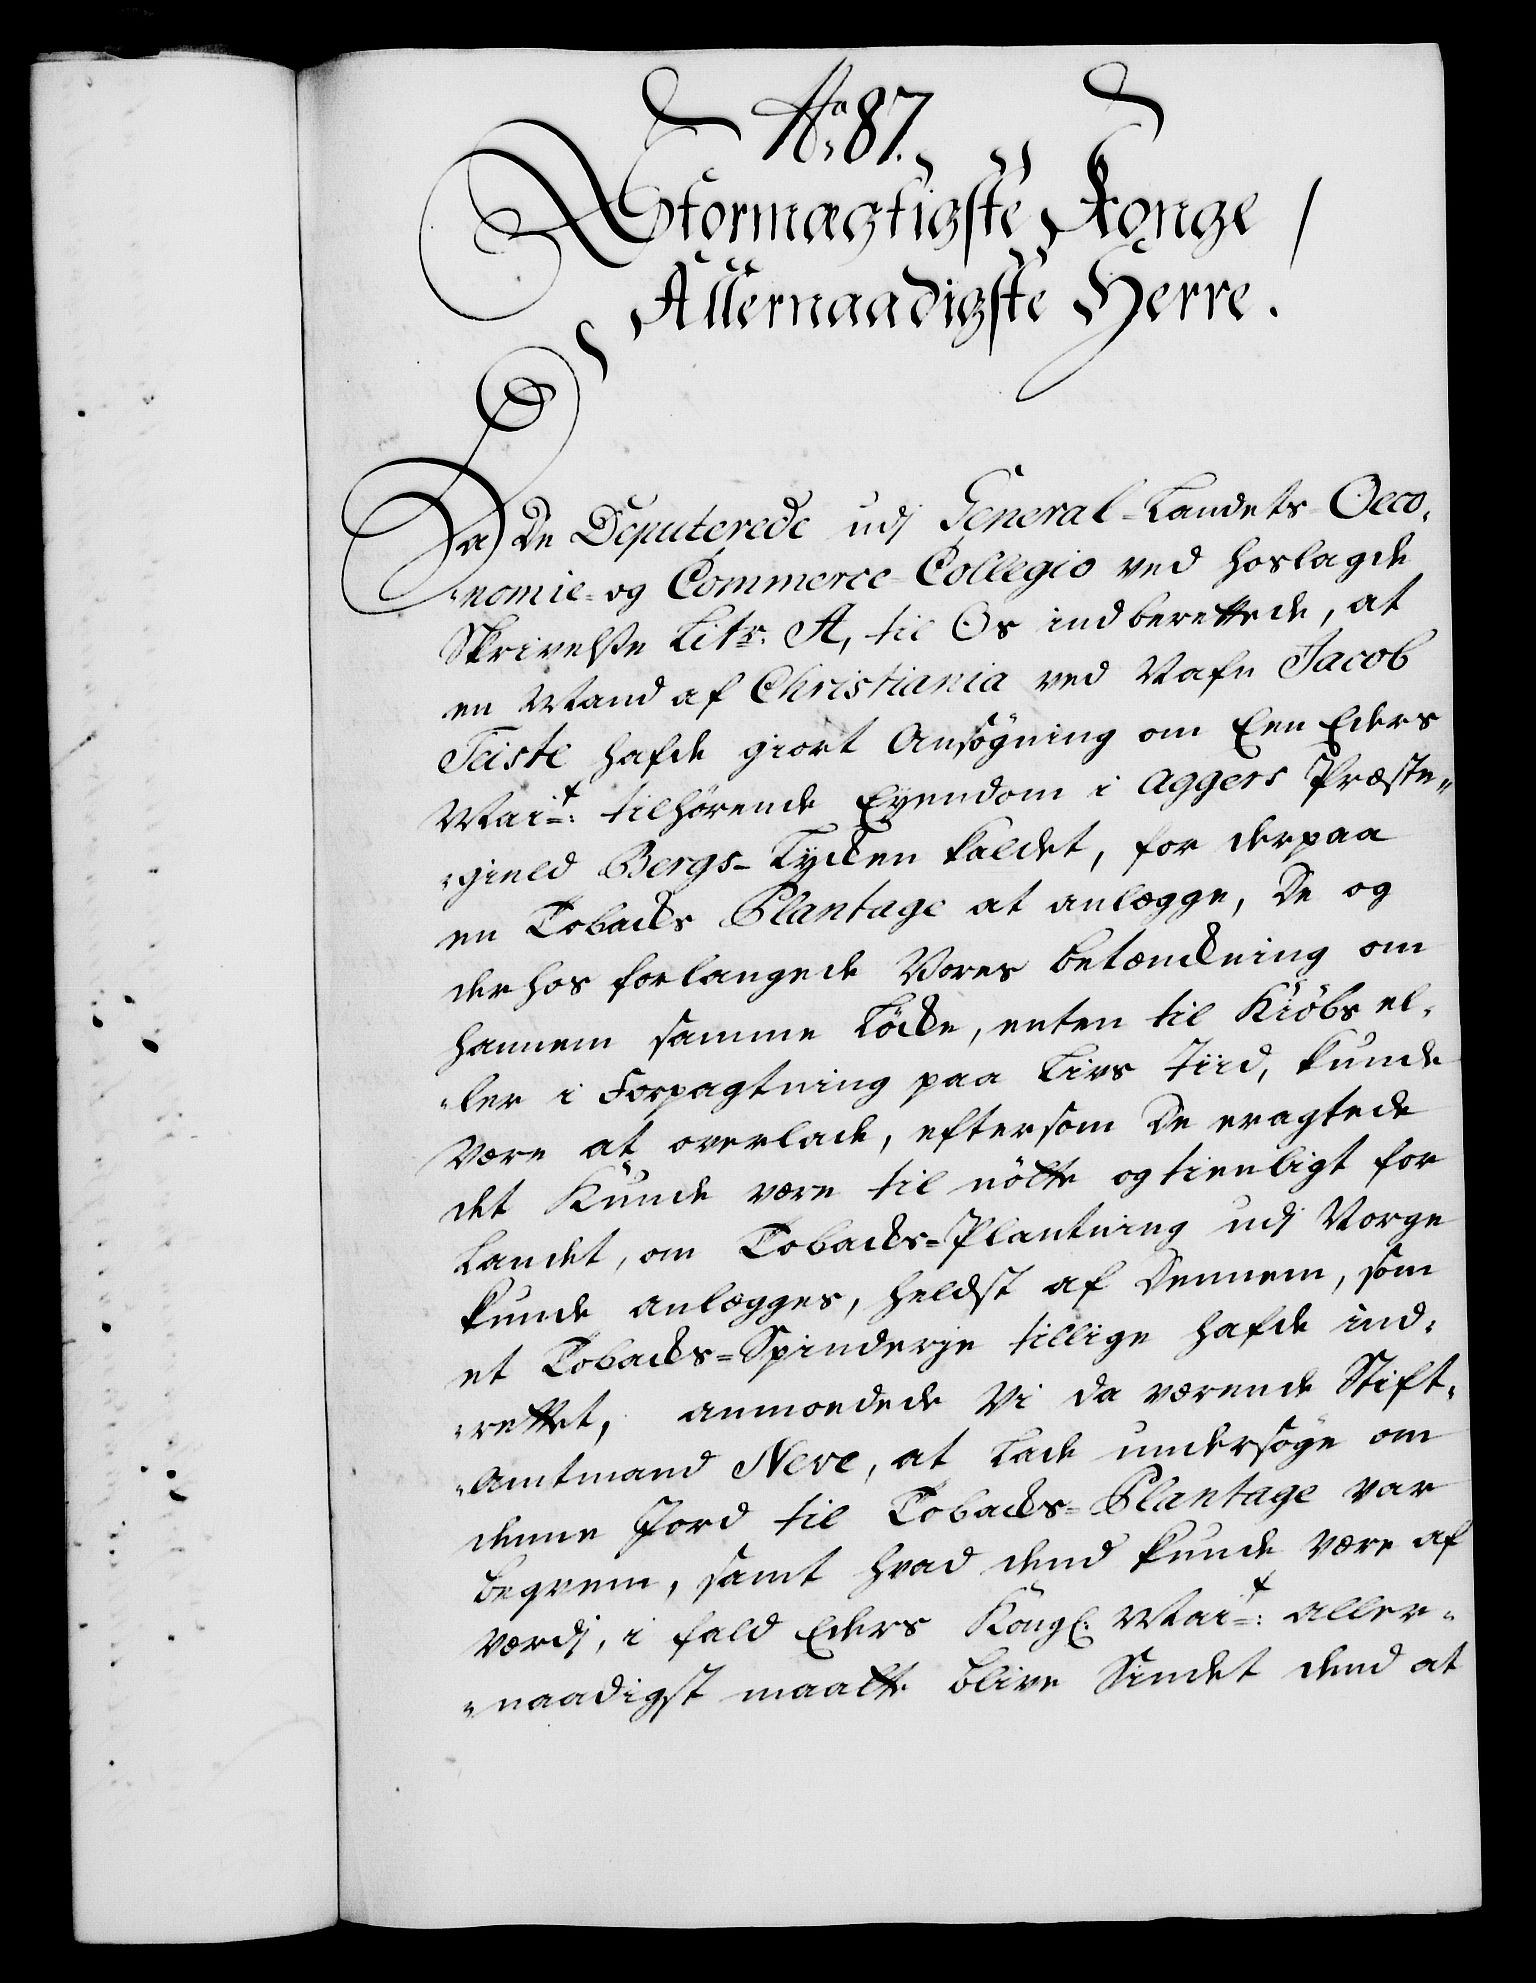 No. 87.
Stormægtigste Konge /
Allernaadigste Herre.
Da De Deputerede udj General-Landets-Oeco-
nomie- og Commerce-Collegio ved hoslagde
Skrivelse Litr. A, til Os indberettede, at
en Mand af Christiania ved Nafn Jacob
Teiste hafde giort Ansögning om Een Eders
Mait: tilhörende Eyendom i Aggers Præste-
gield Bergs-Lycken kaldet, for derpaa
en Tobacks Plantage at anlægge, De og
derhos forlangede Vores betænckning om
hannem samme Löcke, enten til Kiöbs el-
ler i Forpagtning paa Livs Tiid, kunde
være at overlade, eftersom De eragtede
det Kunde være til nötte og tienligt for
Landet, om Tobacks-Plantning udj Norge
kunde anlægges, heldst af Dennem, som
et Tobacks-Spinderje tillige hafde ind-
rettet, anmodede Vi da værende Stift-
Amtmand Neve, at lade undersöge om
denne Jord til Tobacks-Plantage var
beqvem, samt hvad dend kunde være af
Værdj, i fald Eders Kongl. Mait: aller-
naadigst maatte blive Sindet dend at